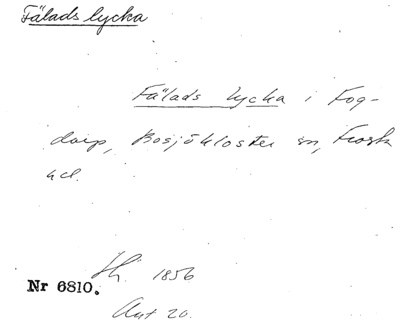 Fälads lycka
Fälads lycka i Fog-
darp, Bosjökloster sn, Frosta
hd.
Hi. 1856
Nr 6810.
Akt 20.